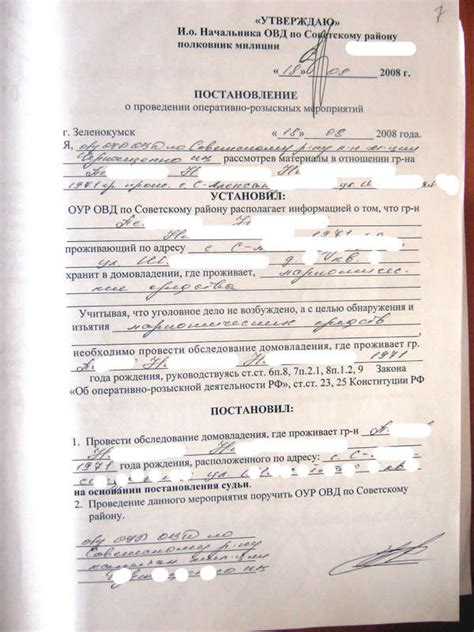 7
«УТВЕРЖДАЮ»
И.о. Начальника ОВД по Советскому району
полковник милиции
« 18 » 08 2008 г.
ПОСТАНОВЛЕНИЕ
о проведении оперативно-розыскных мероприятий
г. Зеленокумск « 18 » 08 2008 года.
Я, о/у ОУР ОВД по Советскому р-ну к-н м-ции
рассмотрев материалы в отношении гр-на
1971 г.р. прож. с. С-
УСТАНОВИЛ:
ОУР ОВД по Советскому району располагает информацией о том, что гр-н
1971
проживающий по адресу с. С-
ул. д. кв.
хранит в домовладении, где проживает, наркотичес-
кие средства
Учитывая, что уголовное дело не возбуждено, а с целью обнаружения и
изъятия наркотических средств
необходимо провести обследование домовладения, где проживает гр.
1971
года рождения, руководствуясь ст.ст. 6п.8, 7п.2.1, 8п.1.2, 9 Закона
«Об оперативно-розыскной деятельности РФ», ст.ст. 23, 25 Конституции РФ
ПОСТАНОВИЛ:
1. Провести обследование домовладения, где проживает гр-н А.
1971 года рождения, расположенного по адресу: с. С-
на основании постановления судьи.
2. Проведение данного мероприятия поручить ОУР ОВД по Советскому
району.
о/у ОУР ОВД по
Советскому р-ну
капитан